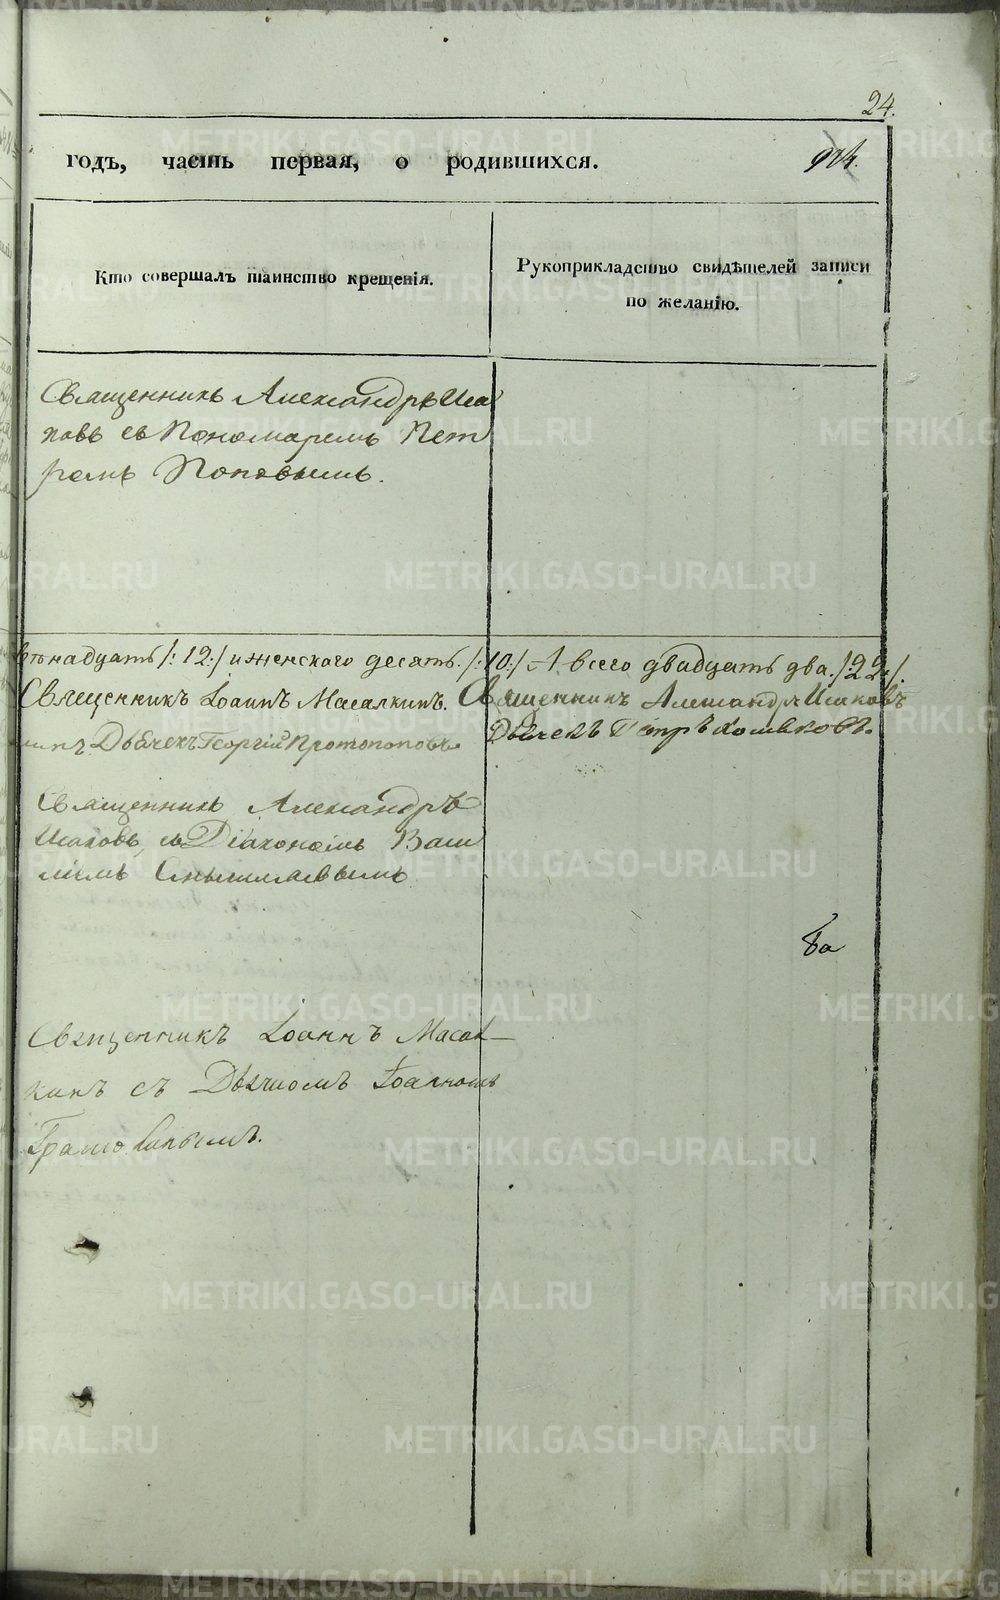 24.
годъ, часть первая, о родившихся.
Кто совершалъ таинство крещенія.
Рукоприкладство свидѣтелей записи
по желанію.
Священникъ Александръ Иса
ковъ съ Пономаремъ Пет
ромъ Поповымъ.
надцать /: 12:/ и женскаго десять. /: 10:/ А всего двадцать два. /: 22:/.
Священникъ Іоаннъ Масалкинъ. Священникъ Александръ Исаковъ
Дьячекъ Георгій Протопоповъ Дьячекъ Петръ Хомяковъ.
Священникъ Александръ
Исаковъ, съ Діакономъ Васи
ліемъ Смышляевымъ
Священникъ Іоаннъ Масал–
кинъ съ Дьячкомъ Іоанномъ
METRIKI.GASO-URAL.RU